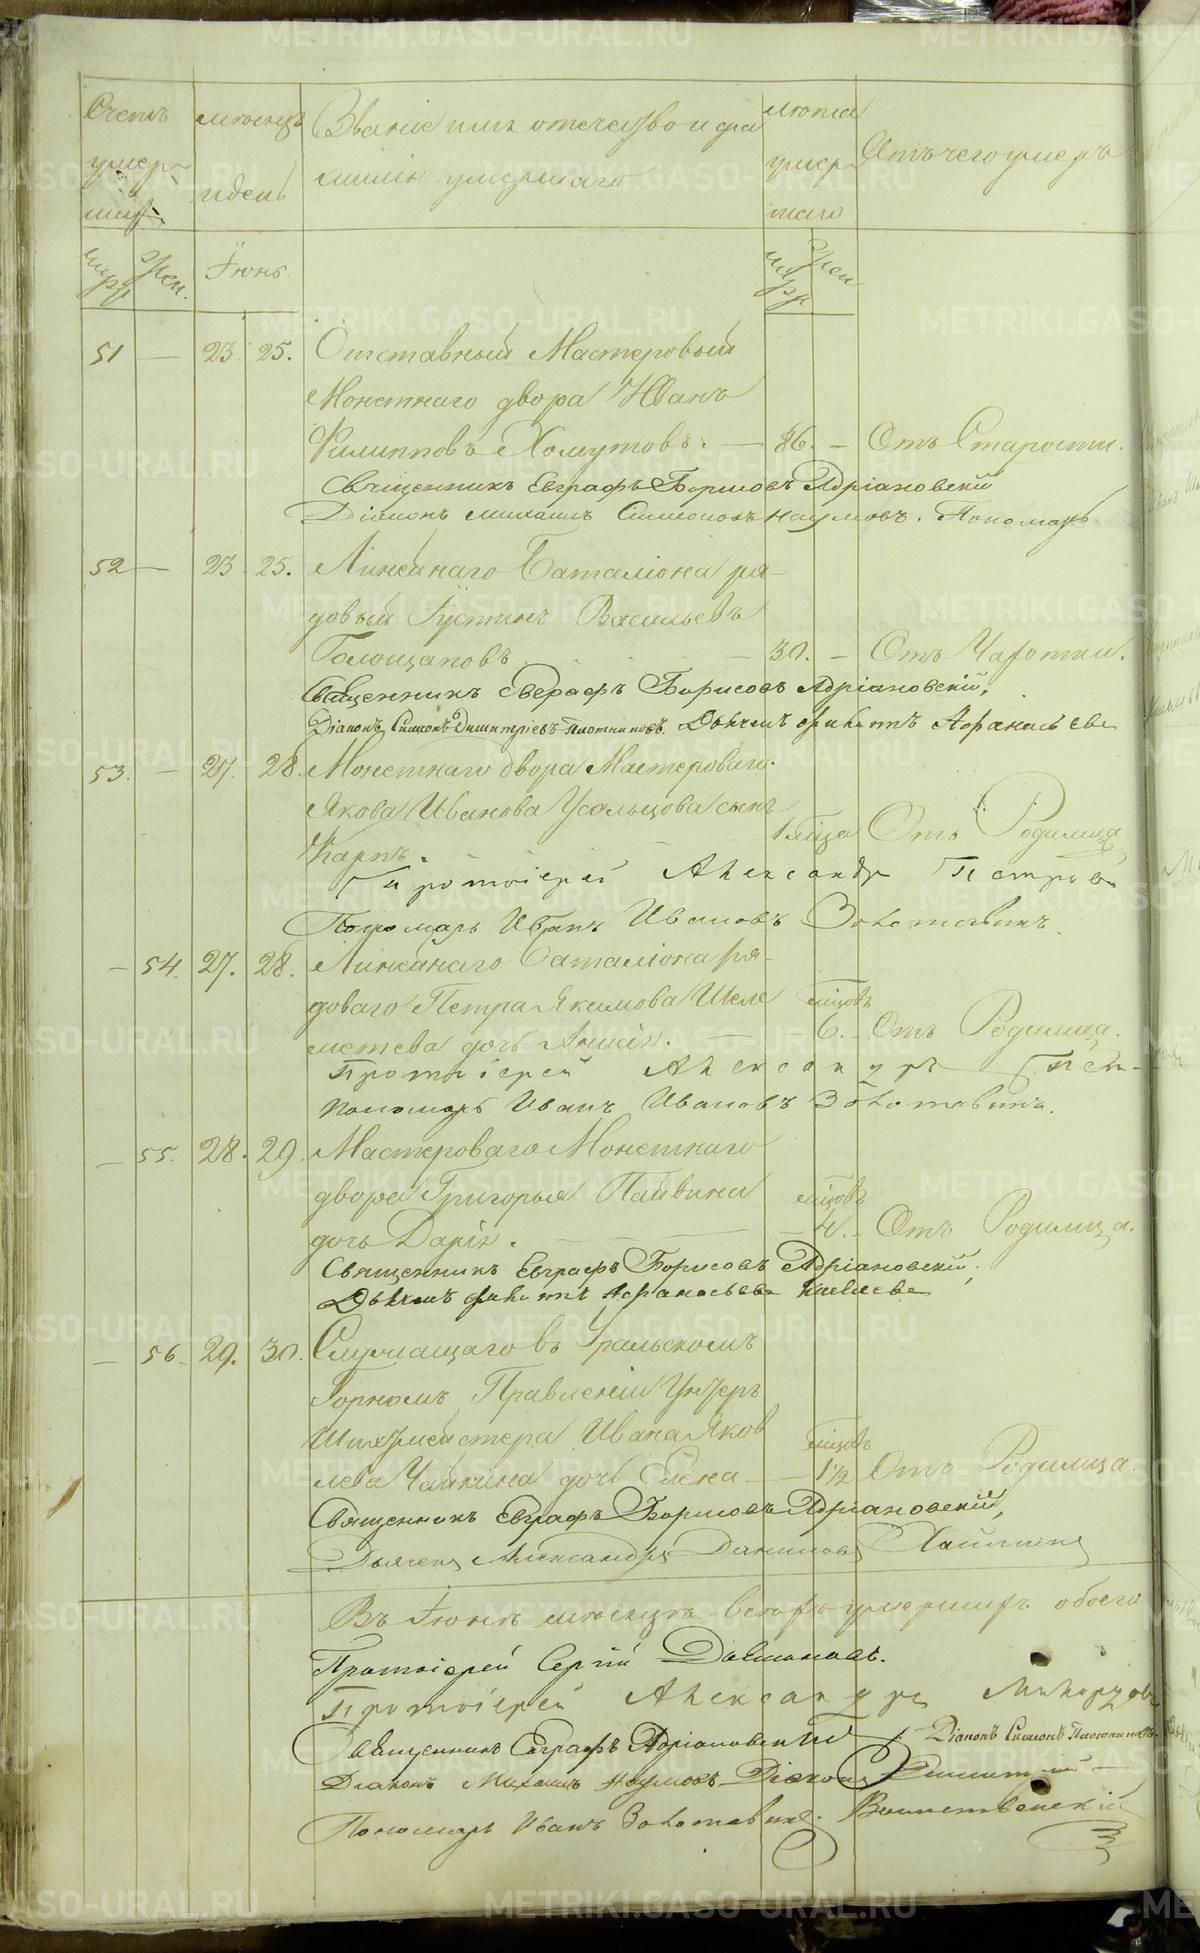 Счетъ умер-шихъ
мѣсяцъ и день
Званіе имя отечество и фа
милія умершаго
лѣта умер-шаго
Отъ чего умеръ
муж.
жен.
Іюнь.
муж.
жен.
51 — 23. 25. Отставный Мастеровый
Монетнаго двора Иванъ
Филипповъ Хомутовъ. — 86. — Отъ Старости.
Священникъ Евграфъ Борисовъ Адріановскій
Діаконъ Михаилъ Симеоновъ Наумовъ. Пономарь
52 — 23. 25. Линейнаго Баталіона ря-
довый Іустинъ Васильевъ
Голощаповъ — 30. — Отъ Чахотки.
Священникъ Евграфъ Борисовъ Адріановскій,
Діаконъ Симеонъ Димитріевъ Плотниковъ. Дьячекъ Филиппъ Афанасьевъ
53. — 27. 28. Монетнаго двора Мастероваго
Якова Иванова Усольцова сынъ
Карпъ. 1 мѣсца Отъ Родимца.
Протоіерей Александръ Петровъ
Пономарь Иванъ Ивановъ Золотавинъ.
— 54. 27. 28. Линейнаго Баталіона ря-
доваго Петра Якимова Шеле
метева дочь Анна. — мѣсцовъ 6. — Отъ Родимца.
Протоіерей Александръ Пет-
Пономарь Иванъ Ивановъ Золотавинъ.
— 55. 28. 29. Мастероваго Монетнаго
двора Григорья Пайвина
дочь Дарія. — мѣсцовъ 4. — Отъ Родимца.
Священникъ Евграфъ Борисовъ Адріановскій,
Дьячекъ Филиппъ Афанасьевъ
— 56. 29. 30. Служащаго въ Уральскомъ
Горномъ Правленіи Унтеръ
Шихтмейстера Ивана Яков
лева Чайкина дочь Елена — мѣсцовъ — 1½ Отъ Родимца.
Священникъ Евграфъ Борисовъ Адріановскій,
Дьячекъ Александръ Даниловъ
Въ Іюнѣ мѣсяцѣ всѣхъ умершихъ обоего
Протоіерей Сергій
Протоіерей Александръ
Священникъ Евграфъ Адріановскій
Діаконъ Симеонъ Плотниковъ
Діаконъ Михаилъ Наумовъ Діаконъ Димитрій
Пономарь Иванъ Золотавинъ.
METRIKI.GASO-URAL.RU